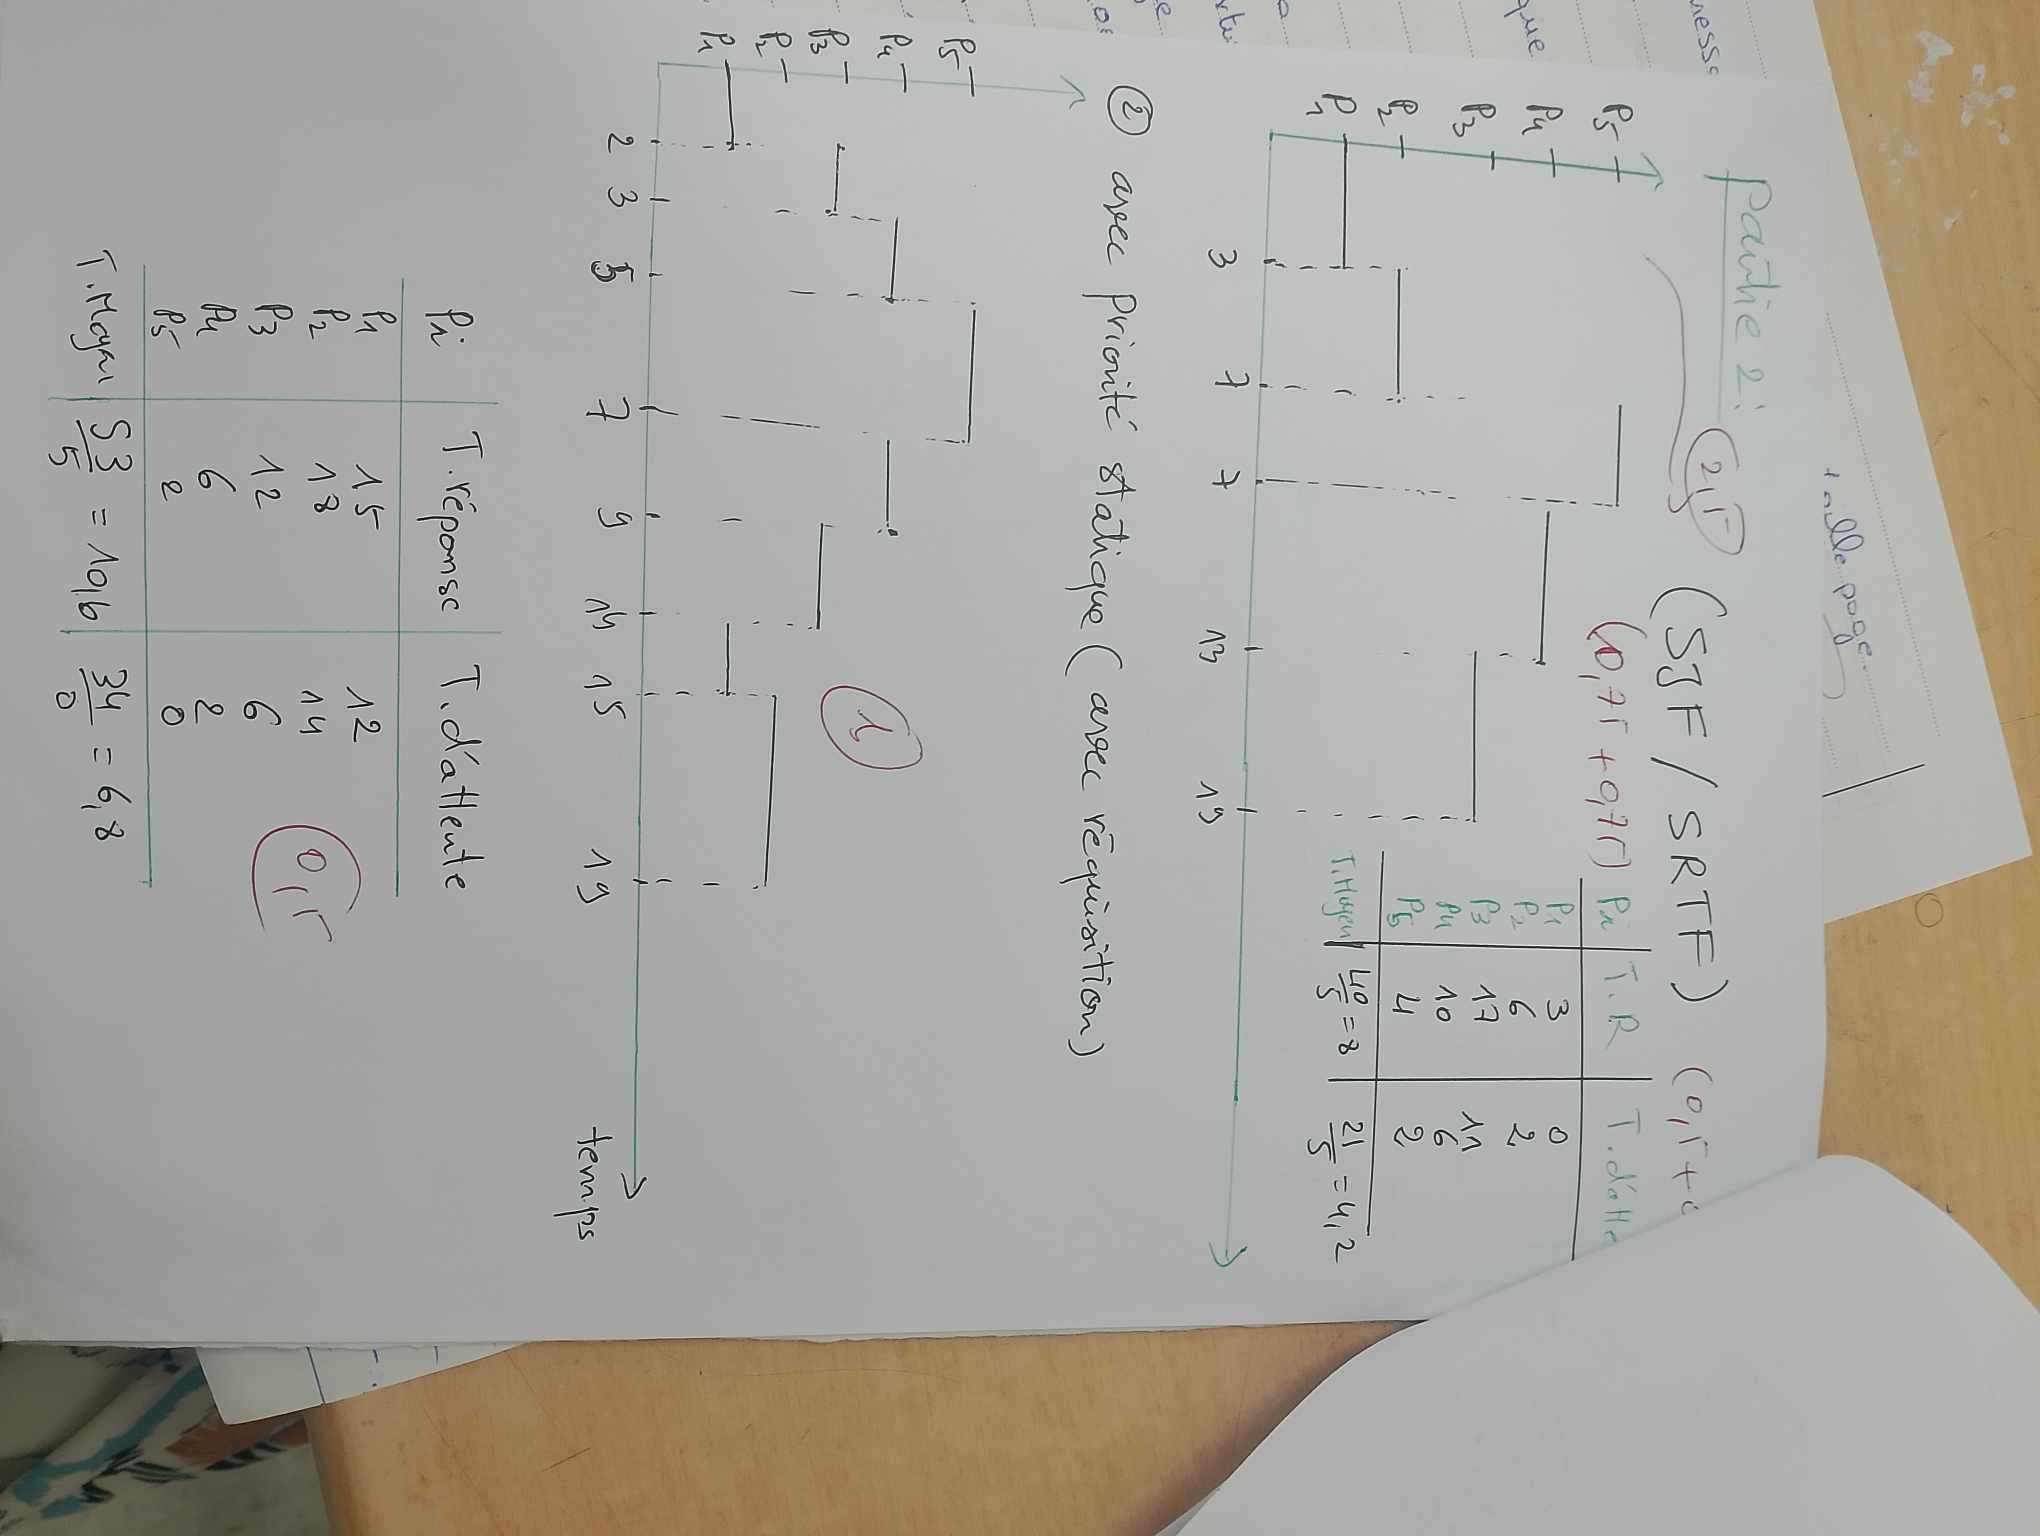 taille page
Partie 2:
2,5
(SJF/SRTF)
(0,75+0,75)
P5
P4
P3
P2
P1
3
7
7
13
19
Pi T.R T.d'atte
P1 3 0
P2 6 2
P3 17 11
P4 10 6
P5 4 2
T.Moyen 40/5 = 8 21/5 = 4,2
② avec priorité statique (avec réquisition)
P5
P4
P3
P2
P1
1
2
3
5
7
9
14
15
19
temps
Pi T.réponse T.d'attente
P1 15 12
P2 18 14
P3 12 6
P4 6 2
P5 2 0
T.Moyen 53/5 = 10,6 34/0 = 6,8
0,5